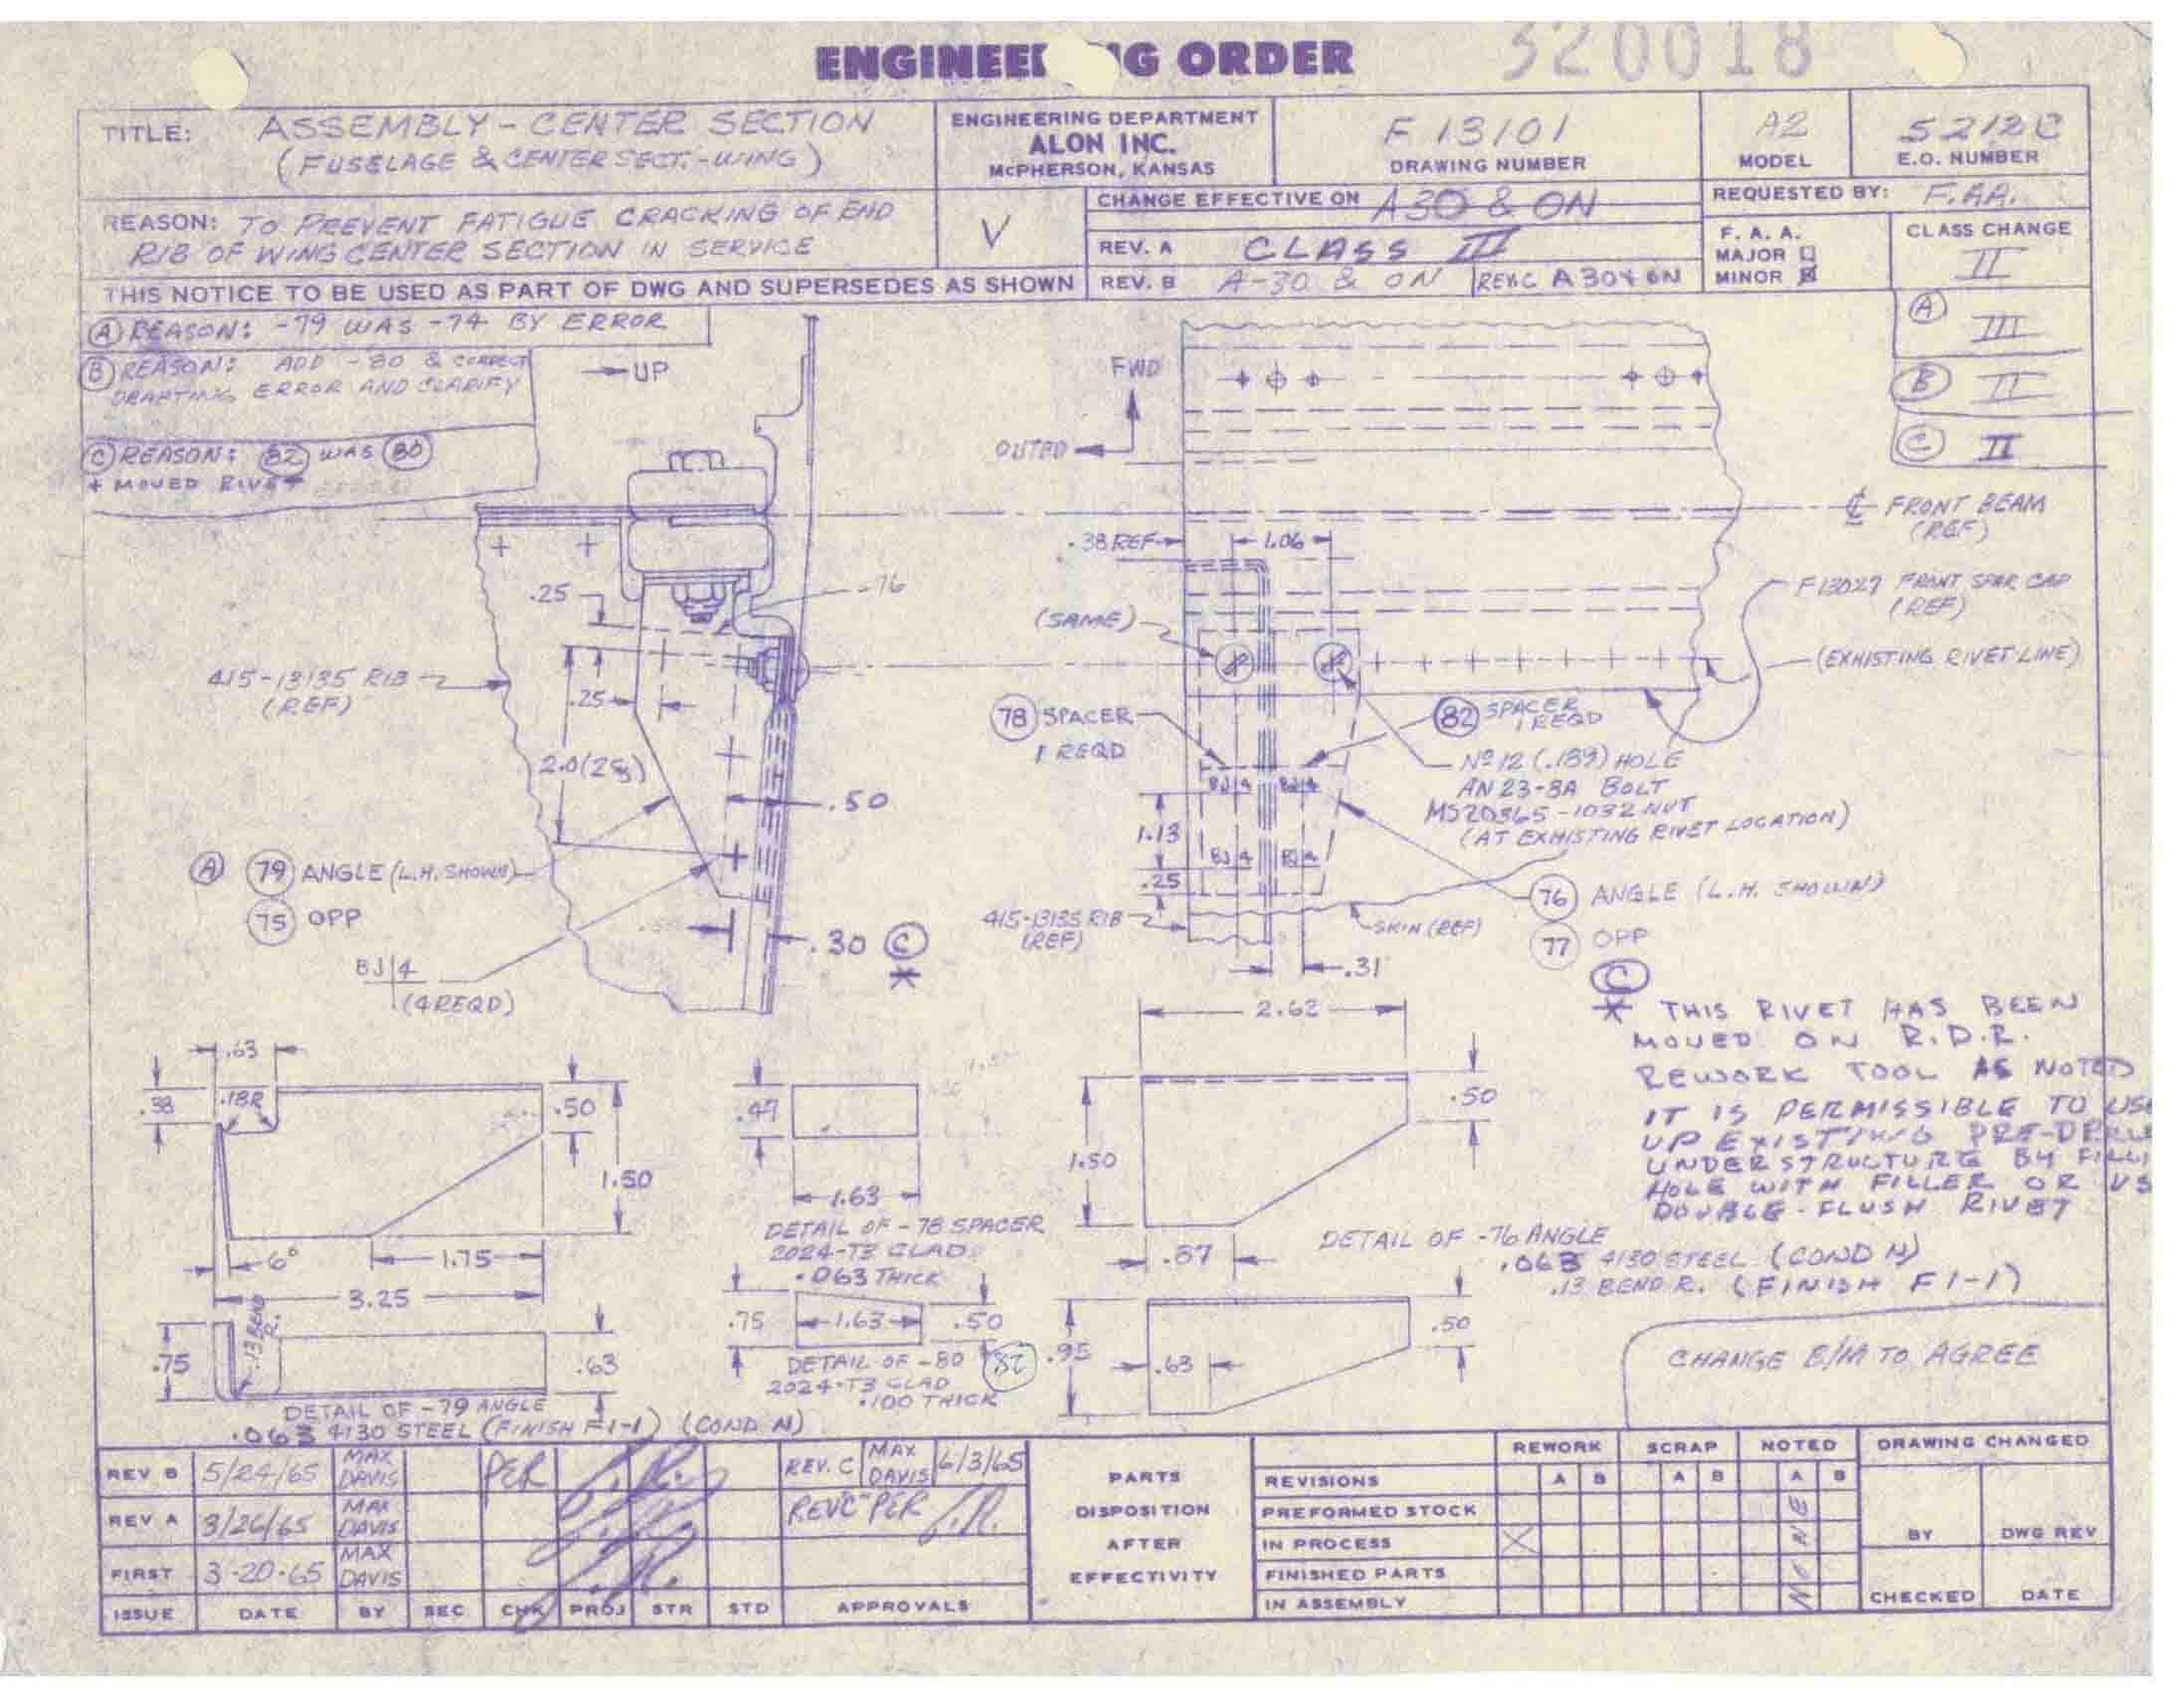 320018
ENGINEE G ORDER
TITLE: ASSEMBLY - CENTER SECTION
(FUSELAGE & CENTER SECT. - WING)
ENGINEERING DEPARTMENT
ALON INC.
McPHERSON, KANSAS
F 13101
DRAWING NUMBER
A2
MODEL
5212C
E.O. NUMBER
REASON: TO PREVENT FATIGUE CRACKING OF END
RIB OF WING CENTER SECTION IN SERVICE
V
CHANGE EFFECTIVE ON A30 & ON
REV. A CLASS III
REV. B A-30 & ON REV.C A30 & ON
REQUESTED BY: F.AA.
F. A. A.
MAJOR
MINOR
CLASS CHANGE
II
THIS NOTICE TO BE USED AS PART OF DWG AND SUPERSEDES AS SHOWN
A REASON: -79 WAS -74 BY ERROR
B REASON: ADD -80 & CORRECT
DRAFTING ERROR AND CLARIFY
C REASON: 82 WAS 80
+ MOVED RIVET
A III
B II
C II
UP
FWD
OUTBD
℄ FRONT BEAM
(REF)
.38 REF
1.06
.25
-76
F13027 FRONT SPAR CAP
(REF)
(SAME)
(EXHISTING RIVET LINE)
415-13135 RIB
(REF)
.25
78 SPACER
1 REQD
82 SPACER
1 REQD
2.0(
.50
Nº 12 (.189) HOLE
AN 23-8A BOLT
MS20365-1032 NUT
(AT EXHISTING RIVET LOCATION)
BJ 4 BJ 4
1.13
BJ 4 BJ 4
.25
A 79 ANGLE (L.H. SHOWN)
75 OPP
76 ANGLE (L.H. SHOWN)
77 OPP
415-13135 RIB
(REF)
SKIN (REF)
.30 C
*
.31
BJ 4
(4 REQD)
C
* THIS RIVET HAS BEEN
MOVED ON R.D.R.
REWORK TOOL AS NOTED
IT IS PERMISSIBLE TO US
UP EXISTING PRE-DR
UNDERSTRUCTURE BY FILLI
HOLE WITH FILLER OR US
DOUBLE-FLUSH RIVET
.63
.38
.18R
.50
1.50
6°
1.75
3.25
.47
1.63
DETAIL OF -78 SPACER
2024-T3 CLAD
.063 THICK
2.62
1.50
.50
.87
DETAIL OF -76 ANGLE
.063 4130 STEEL (COND N)
.13 BEND R. (FINISH F1-1)
.75
.13 BEND R.
.63
DETAIL OF -79 ANGLE
.063 4130 STEEL (FINISH F1-1) (COND N)
.75
1.63
.50
DETAIL OF -80 82
2024-T3 CLAD
.100 THICK
.95
.63
.50
CHANGE B/M TO AGREE
REV B 5/24/65 MAX DAVIS PER
REV. C MAX DAVIS 6/3/65
REV A 3/26/65 MAX DAVIS
REV C PER
FIRST 3-20-65 MAX DAVIS
ISSUE DATE BY SEC CHK PROJ STR STD APPROVALS
PARTS
DISPOSITION
AFTER
EFFECTIVITY
REWORK SCRAP NOTED
REVISIONS A B A B A B
PREFORMED STOCK
IN PROCESS X
FINISHED PARTS
IN ASSEMBLY
NONE
DRAWING CHANGED
BY DWG REV
CHECKED DATE